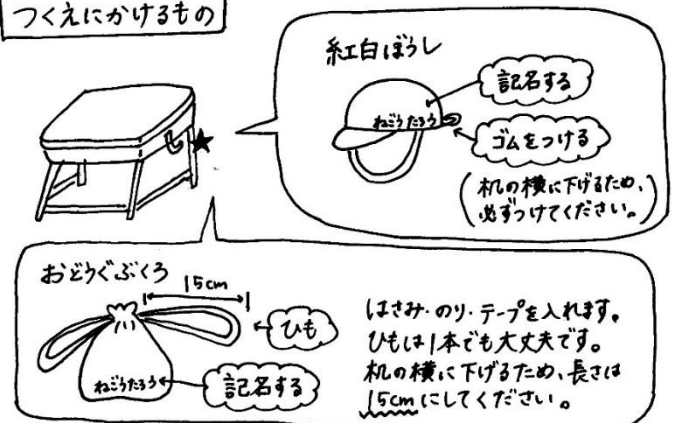 つくえにかけるもの
紅白ぼうし
記名する
ねごうたろう
ゴムをつける
(机の横に下げるため、
必ずつけてください。)
★
おどうぐぶくろ
15cm
ひも
ねごうたろう
記名する
はさみ・のり・テープを入れます。
ひもは1本でも大丈夫です。
机の横に下げるため、長さは
15cmにしてください。